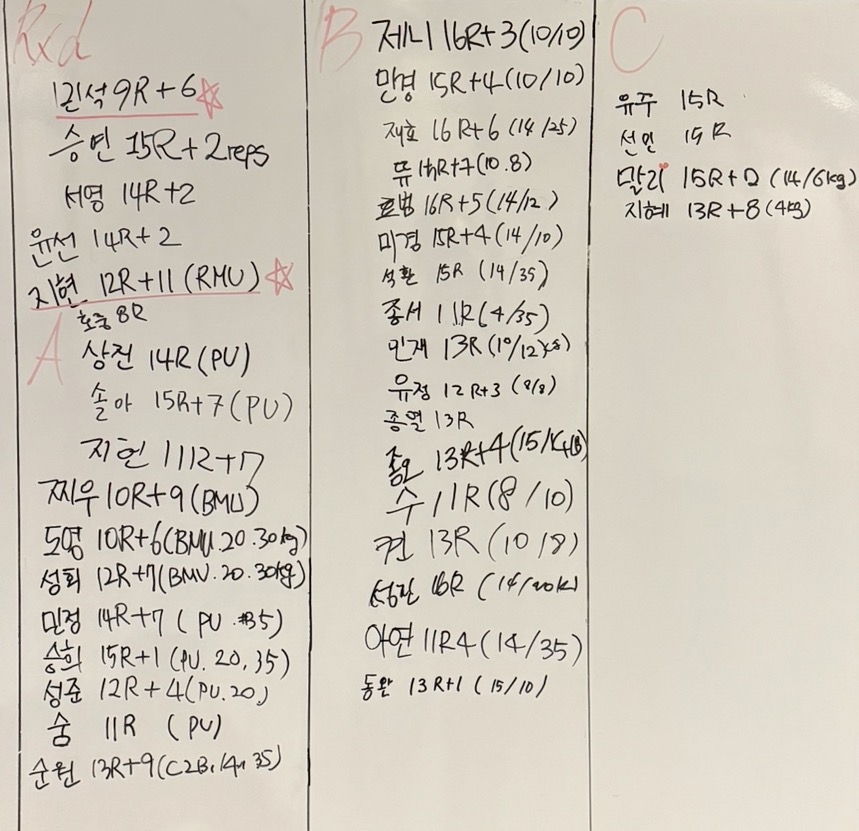 Rxd
민석 9R+6
승연 15R+2reps
서영 14R+2
윤선 14R+2
지현 12R+11 (RMU)
호중 8R
A
상진 14R (PU)
솔아 15R+7 (PU)
지헌 11R+7
찌우 10R+9 (BMU)
도영 10R+6 (BMU.20.30kg)
성희 12R+7 (BMU.20.30kg)
민정 14R+7 (PU.#35)
승희 15R+1 (PU.20,35)
성준 12R+4 (PU.20)
숨 11R (PU)
순원 13R+9 (C2B.14.35)
B
제니 16R+3 (10/10)
만경 15R+4 (10/10)
재호 16R+6 (14/25)
뜌 (10.8)
효범 16R+5 (14/12)
미경 15R+4 (14/10)
석환 15R (14/35)
종서 11R (4/35)
민재 13R (10/12kg)
유정 12R+3 (8/8)
종열 13R
13R+4 (15/
수 11R (8/10)
켠 13R (10/8)
성관 16R (14/20K)
아연 11R4 (14/35)
동완 13R+1 (15/10)
C
유주 15R
선인 15R
말리 15R+2 (14/6kg)
지혜 13R+8 (4kg)